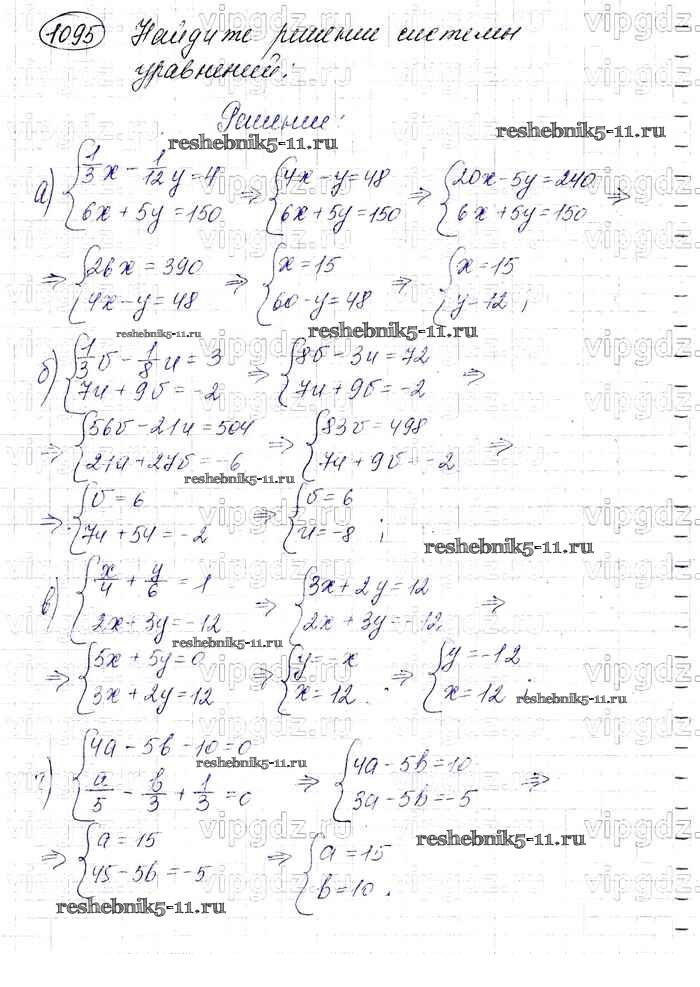 1095 Найдите решение системы
уравнений:
Решение:
reshebnik5-11.ru
reshebnik5-11.ru
а) {1/3 x - 1/12 y = 4 ⇒ {4x - y = 48 ⇒ {20x - 5y = 240 ⇒
{6x + 5y = 150 {6x + 5y = 150 {6x + 5y = 150
⇒ {26x = 390 ⇒ {x = 15 ⇒ {x = 15
{4x - y = 48 {60 - y = 48 {y = 12 ;
reshebnik5-11.ru
reshebnik5-11.ru
б) {1/3 v - 1/8 u = 3 ⇒ {8v - 3u = 72 ⇒
{7u + 9v = -2 {7u + 9v = -2
⇒ {56v - 21u = 504 ⇒ {83v = 498 ⇒
{21u + 27v = -6 {7u + 9v = -2
reshebnik5-11.ru
⇒ {v = 6 ⇒ {v = 6
{7u + 54 = -2 {u = -8 ;
reshebnik5-11.ru
в) {x/4 + y/6 = 1 ⇒ {3x + 2y = 12 ⇒
{2x + 3y = -12 {2x + 3y = -12
reshebnik5-11.ru
⇒ {5x + 5y = 0 ⇒ {y = -x ⇒ {y = -12
{3x + 2y = 12 {x = 12 . {x = 12 ;
reshebnik5-11.ru
г) {4a - 5b - 10 = 0 ⇒ {4a - 5b = 10 ⇒
{a/5 - b/3 + 1/3 = 0 {3a - 5b = -5
reshebnik5-11.ru
⇒ {a = 15 ⇒ {a = 15
{45 - 5b = -5 {b = 10 .
reshebnik5-11.ru
reshebnik5-11.ru
vipgdz.ru